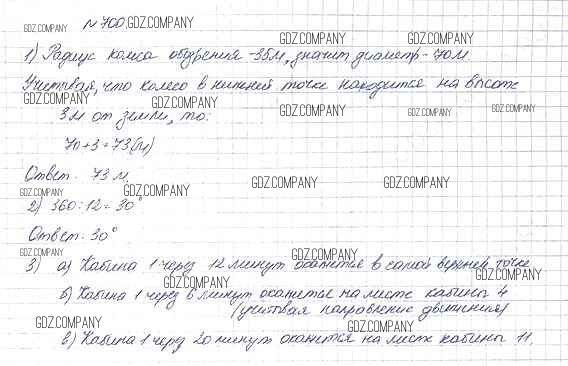 № 700. GDZ.COMPANY
GDZ.COMPANY GDZ.COMPANY GDZ.COMPANY
1) Радиус колеса обозрения - 35м, значит диаметр - 70м.
Учитывая, что колесо в нижней точке находится на высоте
GDZ.COMPANY GDZ.COMPANY GDZ.COMPANY GDZ.COMPANY GDZ.COMPANY
3м от земли, то:
70+3=73(м)
Ответ: 73 м.
GDZ.COMPANY GDZ.COMPANY GDZ.COMPANY GDZ.COMPANY
2) 360:12=30°
Ответ: 30°
GDZ.COMPANY GDZ.COMPANY
3) а) Кабина 1 через 12 минут окажется в самой верхней точке
GDZ.COMPANY GDZ.COMPANY
б) Кабина 1 через 6 минут окажется на месте кабины 4
(учитывая направление движения)
GDZ.COMPANY GDZ.COMPANY
в) Кабина 1 через 20 минут окажется на месте кабины 11.